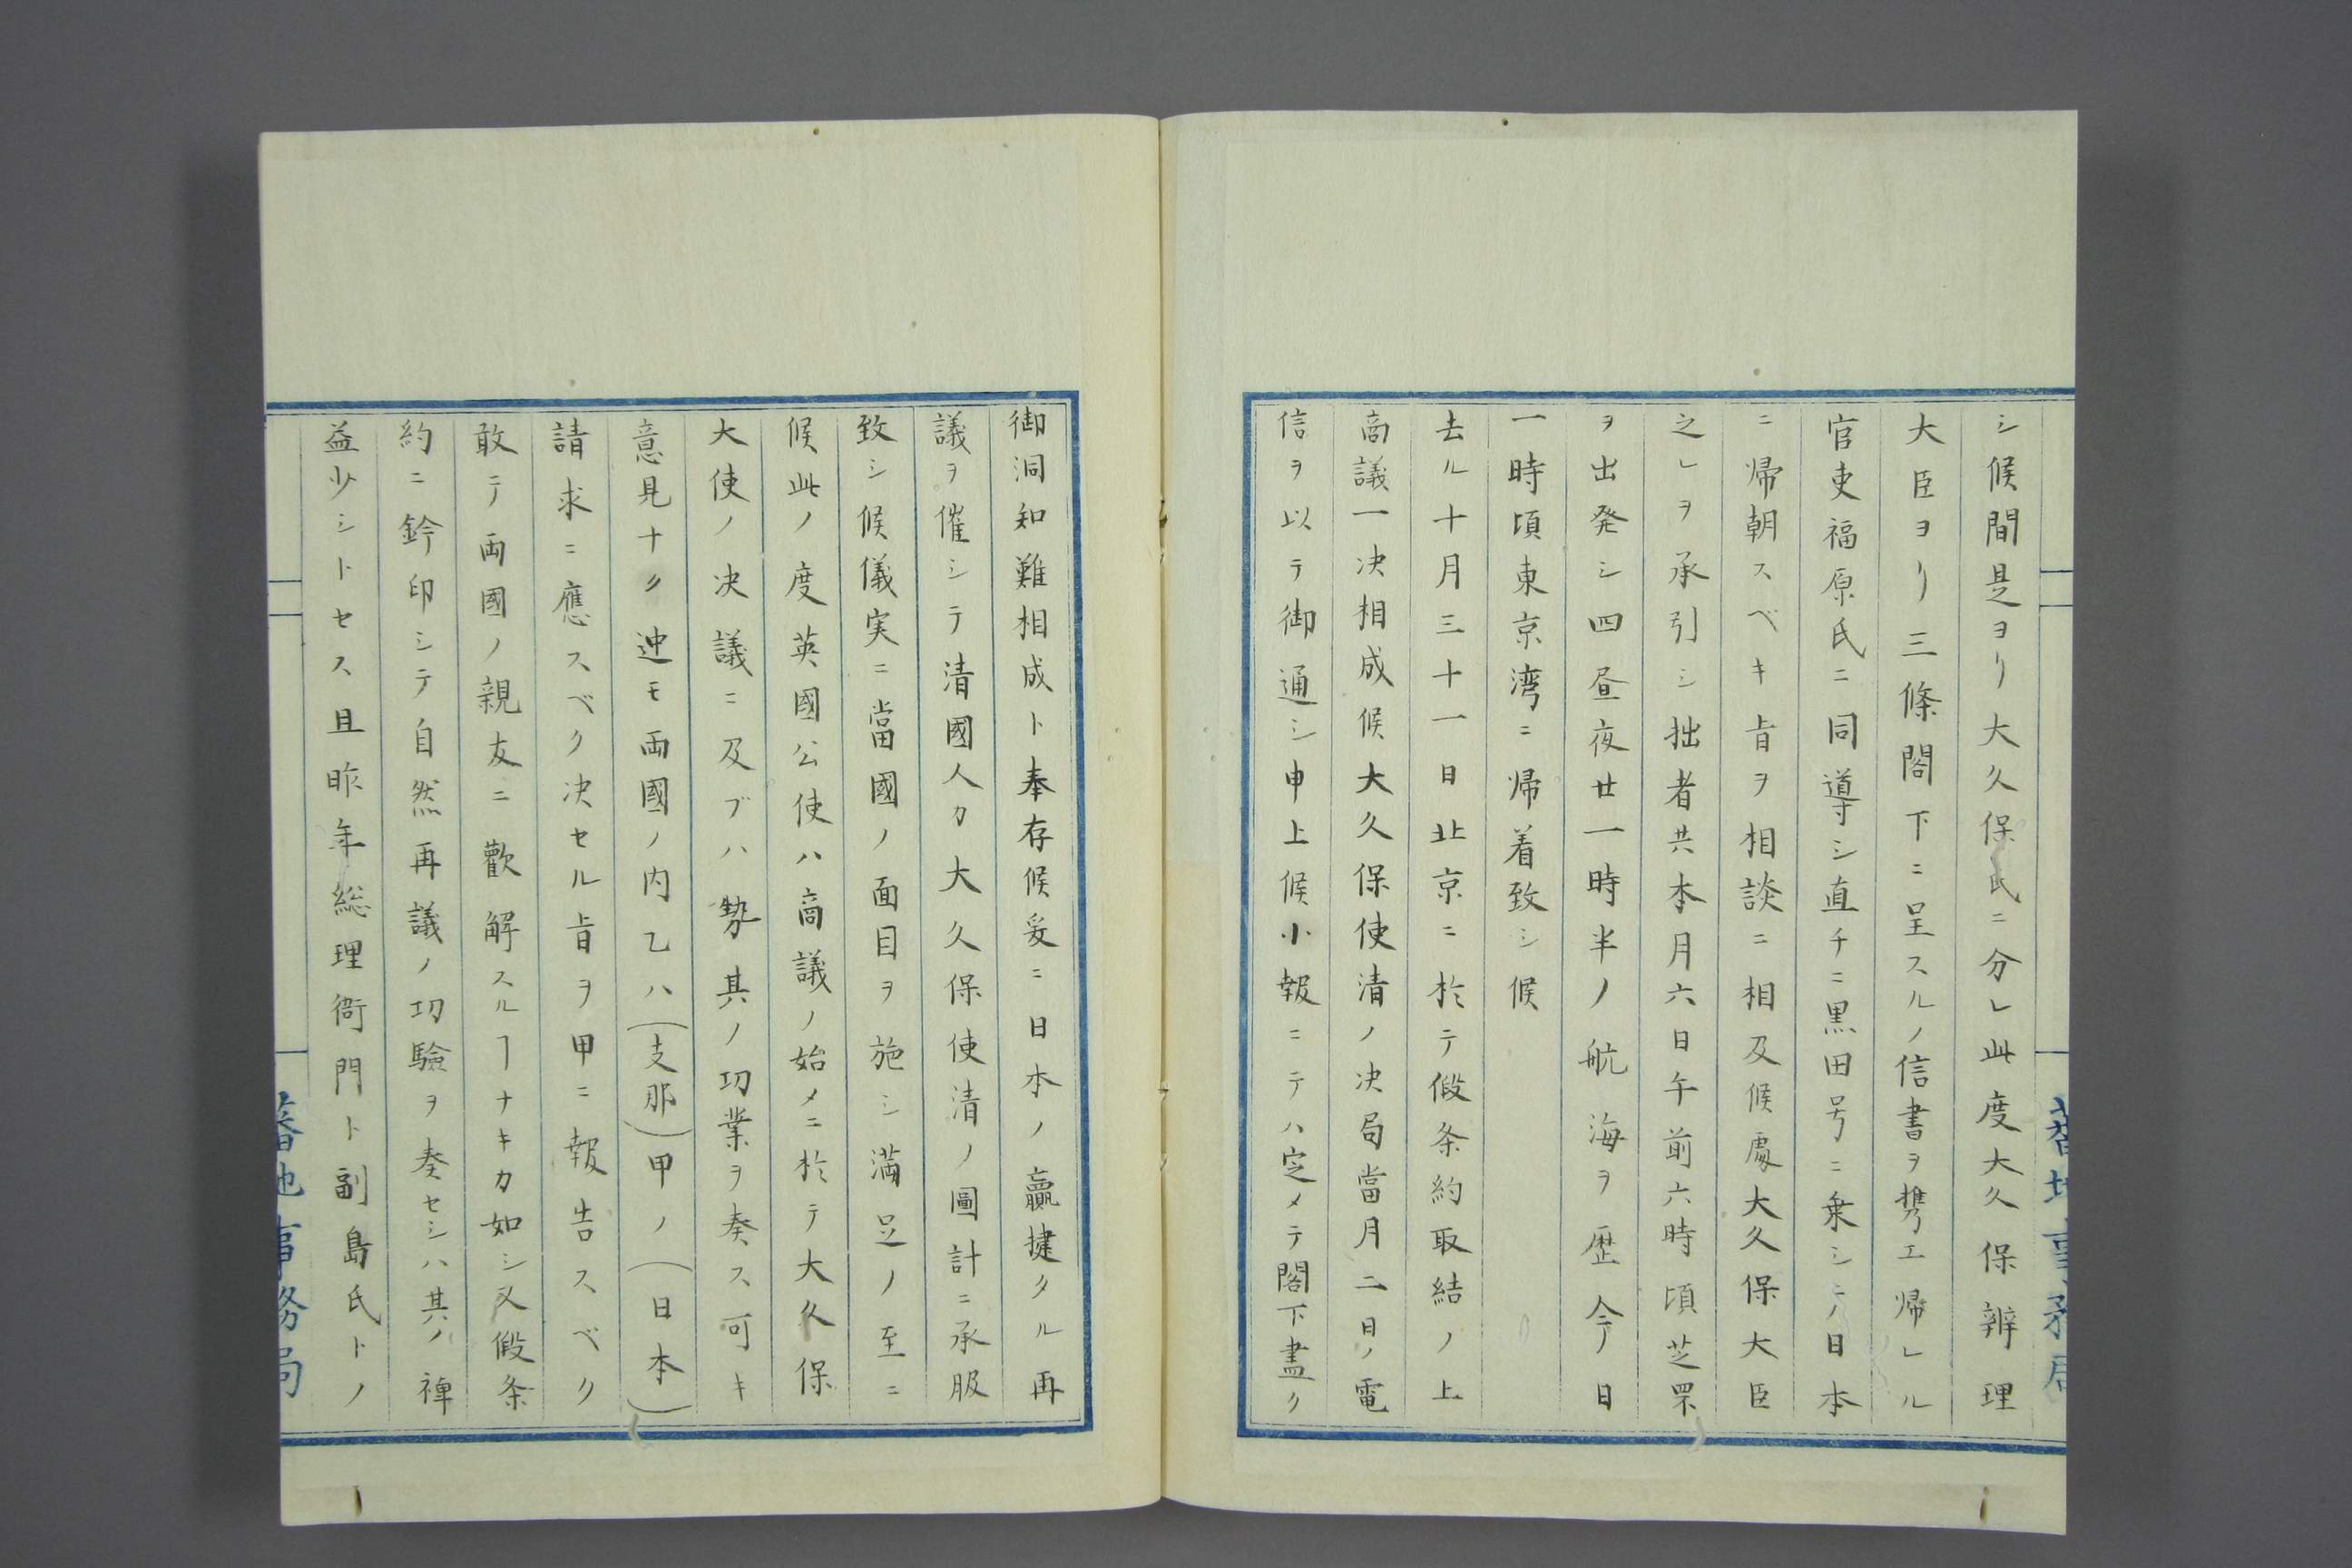 シ候間是ヨリ大久保氏ニ分レ此度大久保辨理
大臣ヨリ三條閣下ニ呈スルノ信書ヲ携エ帰レル
官吏福原氏ニ同導シ直チニ黒田号ニ乗シニノ日本
ニ帰朝スベキ旨ヲ相談ニ相及候處大久保大臣
之レヲ承引シ拙者共本月六日午前六時頃芝罘
ヲ出発シ四昼夜廿一時半ノ航海ヲ歴今日
一時頃東京湾ニ帰着致シ候
去ル十月三十一日北京ニ於テ假条約取結ノ上
商議一决相成候大久保使清ノ决局當月二日ノ電
信ヲ以テ御通シ申上候小報ニテハ定メテ閣下盡ク
御洞知難相成ト奉存候爰ニ日本ノ贏捷タル再
議ヲ催シテ清國人カ大久保使清ノ圖計ニ承服
致シ候儀実ニ當國ノ面目ヲ施シ満足ノ至ニ
候此ノ度英國公使ハ商議ノ始メニ於テ大久保
大使ノ决議ニ及ブハ勢其ノ功業ヲ奏ス可キ
意見ナク迚モ両國ノ内乙ハ(支那)甲ノ(日本)
請求ニ應スベク决セル旨ヲ甲ニ報告スベク
敢テ両國ノ親友ニ歡解スルヿナキカ如シ又假条
約ニ鈐印シテ自然再議ノ功驗ヲ奏セシハ其ノ裨
益少シトセス且昨年総理衙門ト副島氏トノ
蕃地事務局
蕃地事務局